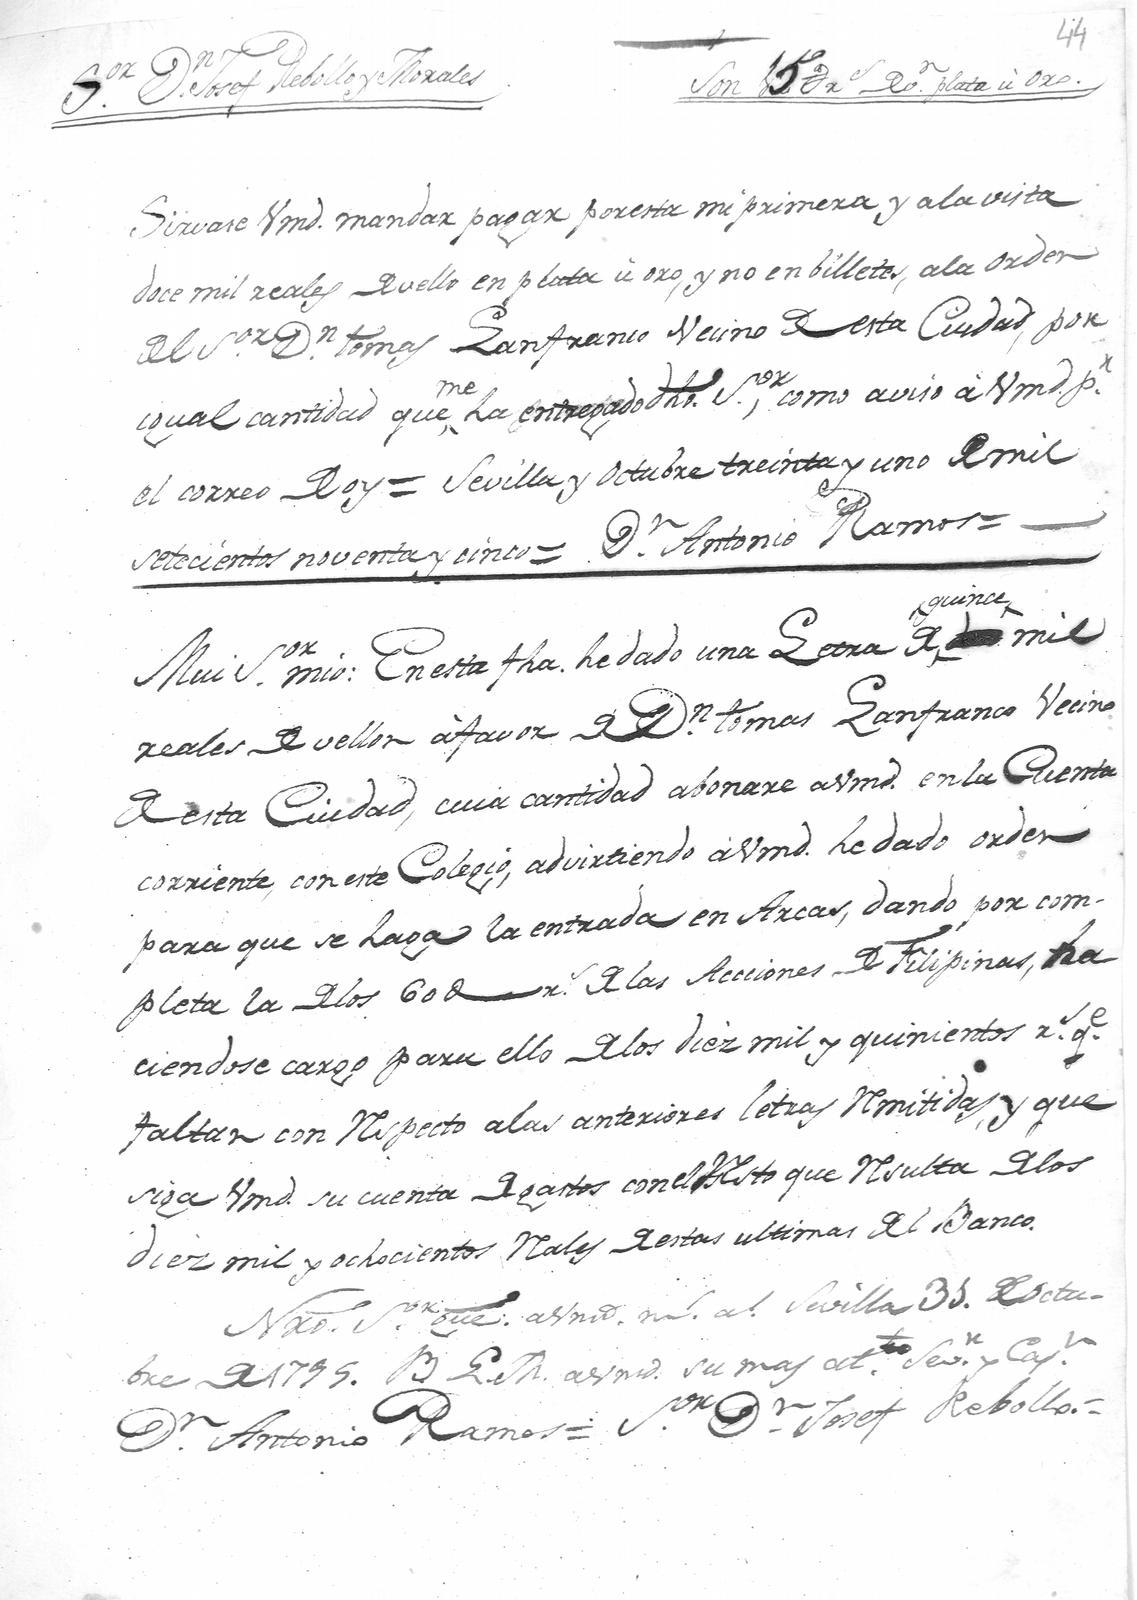 44
S.or D.n Josef Rebollo y Morales
Son 15 D r.s Do.n plata ù oro.
Sirvase Vmd. mandar pagar por esta mi primera y ala vista
doce mil reales de vello en plata ù oro, y no en billetes, ala orden
del S.or D.n tomas Lanfranco Vecino de esta Ciudad, por
igual cantidad que me ha entregado dho. S.or, como aviso à Vmd. p.r
el correo de oy = Sevilla y Octubre treinta y uno de mil
setecientos noventa y cinco = D.n Antonio Ramos =
quince
Mui S.or mio: En esta fha. he dado una Letra de mil
reales de vellon à favor de D.n tomas Lanfranco Vecino
de esta Ciudad, cuia cantidad abonare a Vmd. en la Cuenta
corriente, con este Colegio, advirtiendo à Vmd. he dado orden
para que se haga la entrada en Arcas, dando por com-
pleta la de los 60 D r.s de las Acciones de Filipinas, ha
ciendose cargo para ello de los diez mil y quinientos r.s q.e
faltan con respecto alas anteriores letras remitidas, y que
siga Vmd. su cuenta de gastos con el resto que resulta de los
diez mil y ochocientos reales de estas ultimas del Banco.
Nro. S.or gue. a Vmd. m.s a.s Sevilla 31. de Octu-
bre de 1795. B L. M. a Vmd. su mas at.to Sev.r y Cap.n
D.n Antonio Ramos = S.or D.n Josef Rebollo. =